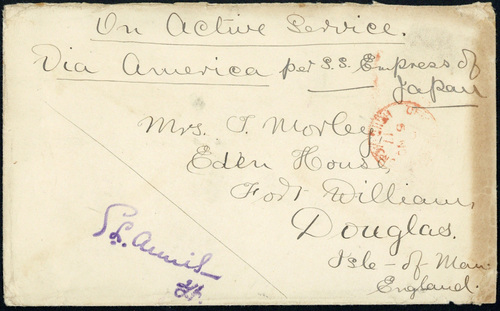 On Active Service.
Via America per S.S. Empress of
Japan
Mrs. T. Morley
Eden House,
Fort William,
Douglas.
Isle-of-Man.
England.